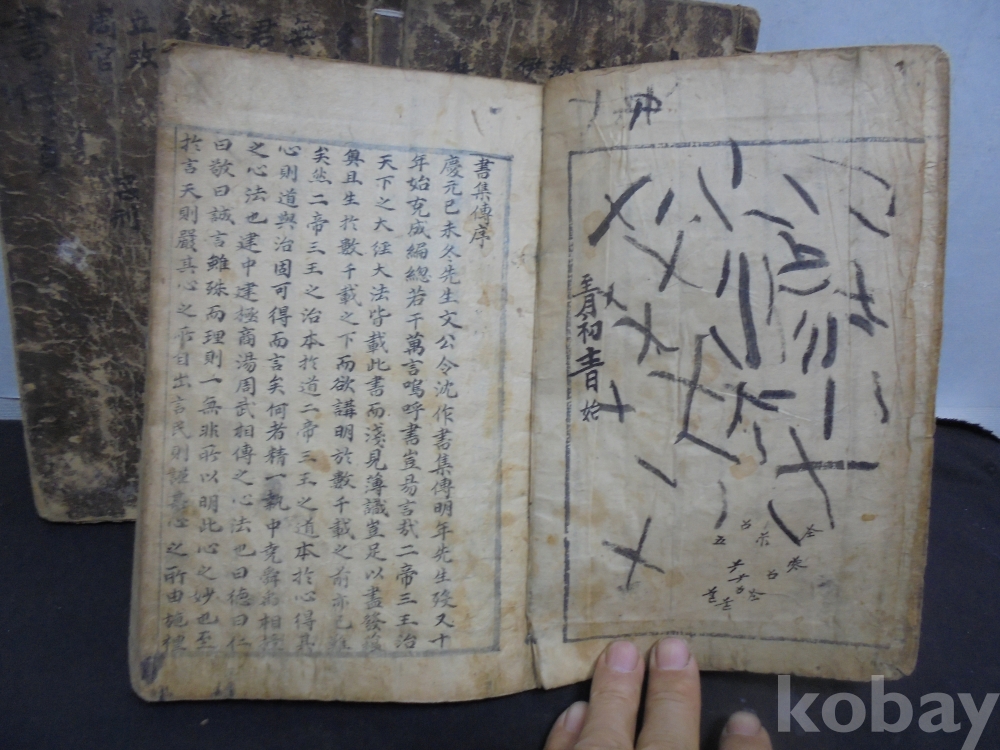 青初青始
書集傳序
慶元己未冬先生文公令沈作書集傳明年先生歿又十
年始克成編總若干萬言嗚呼書豈易言哉二帝三王治
天下之大經大法皆載此書而淺見薄識豈足以盡發蘊
奧且生扵數千載之下而欲講明扵數千載之前亦已難
矣然二帝三王之治本扵道二帝三王之道本扵心得其
心則道與治固可得而言矣何者精一執中堯舜禹相授
之心法也建中建極商湯周武相傳之心法也曰德曰仁
曰敬曰誠言雖殊而理則一無非所以明此心之妙也至
扵言天則嚴其心之所自出言民則謹其心之所由施禮
立政
周官
kobay